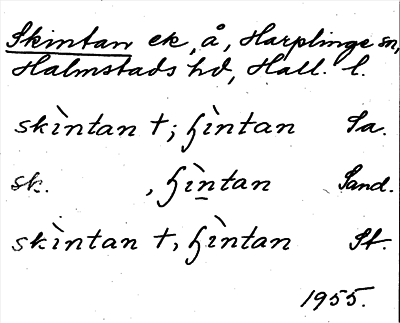 Skintan ek, å, Harplinge sn,
Halmstads hd, Hall. l.
skìntan †; ɧìntan Sa.
sk. , ɧìntan Sand.
skìntan †, ɧìntan St.
1955.